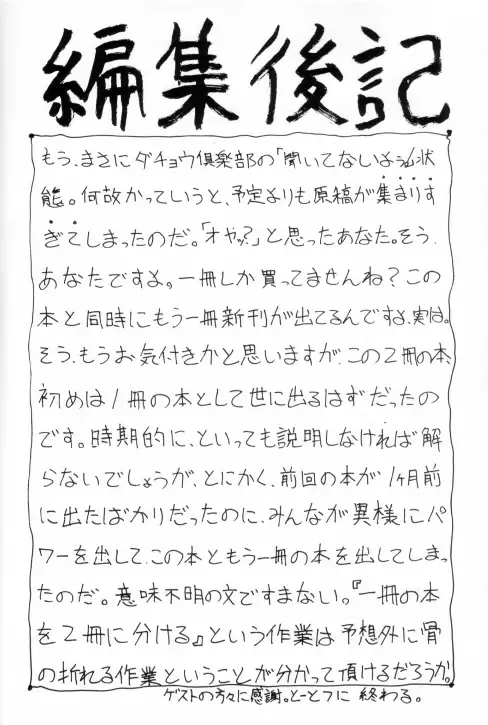 編集後記
もう、まさにダチョウ倶楽部の「聞いてないよぉ」状
態。何故かっていうと、予定よりも原稿が集まりす
ぎてしまったのだ。「オヤッ?」と思ったあなた。そう、
あなたですよ。一冊しか買ってませんね?この
本と同時にもう一冊新刊が出てるんですよ、実は。
そう、もうお気付きかと思いますが、この2冊の本、
初めは1冊の本として世に出るはずだったの
です。時期的に、といっても説明しなければ解
らないでしょうが、とにかく、前回の本が1ヶ月前
に出たばかりだったのに、みんなが異様にパ
ワーを出して、この本ともう一冊の本を出してしまっ
たのだ。意味不明の文ですまない。『一冊の本
を2冊に分ける』という作業は予想外に骨
の折れる作業ということが分かって頂けるだろうか。
ゲストの方々に感謝。とーとつに 終わる。